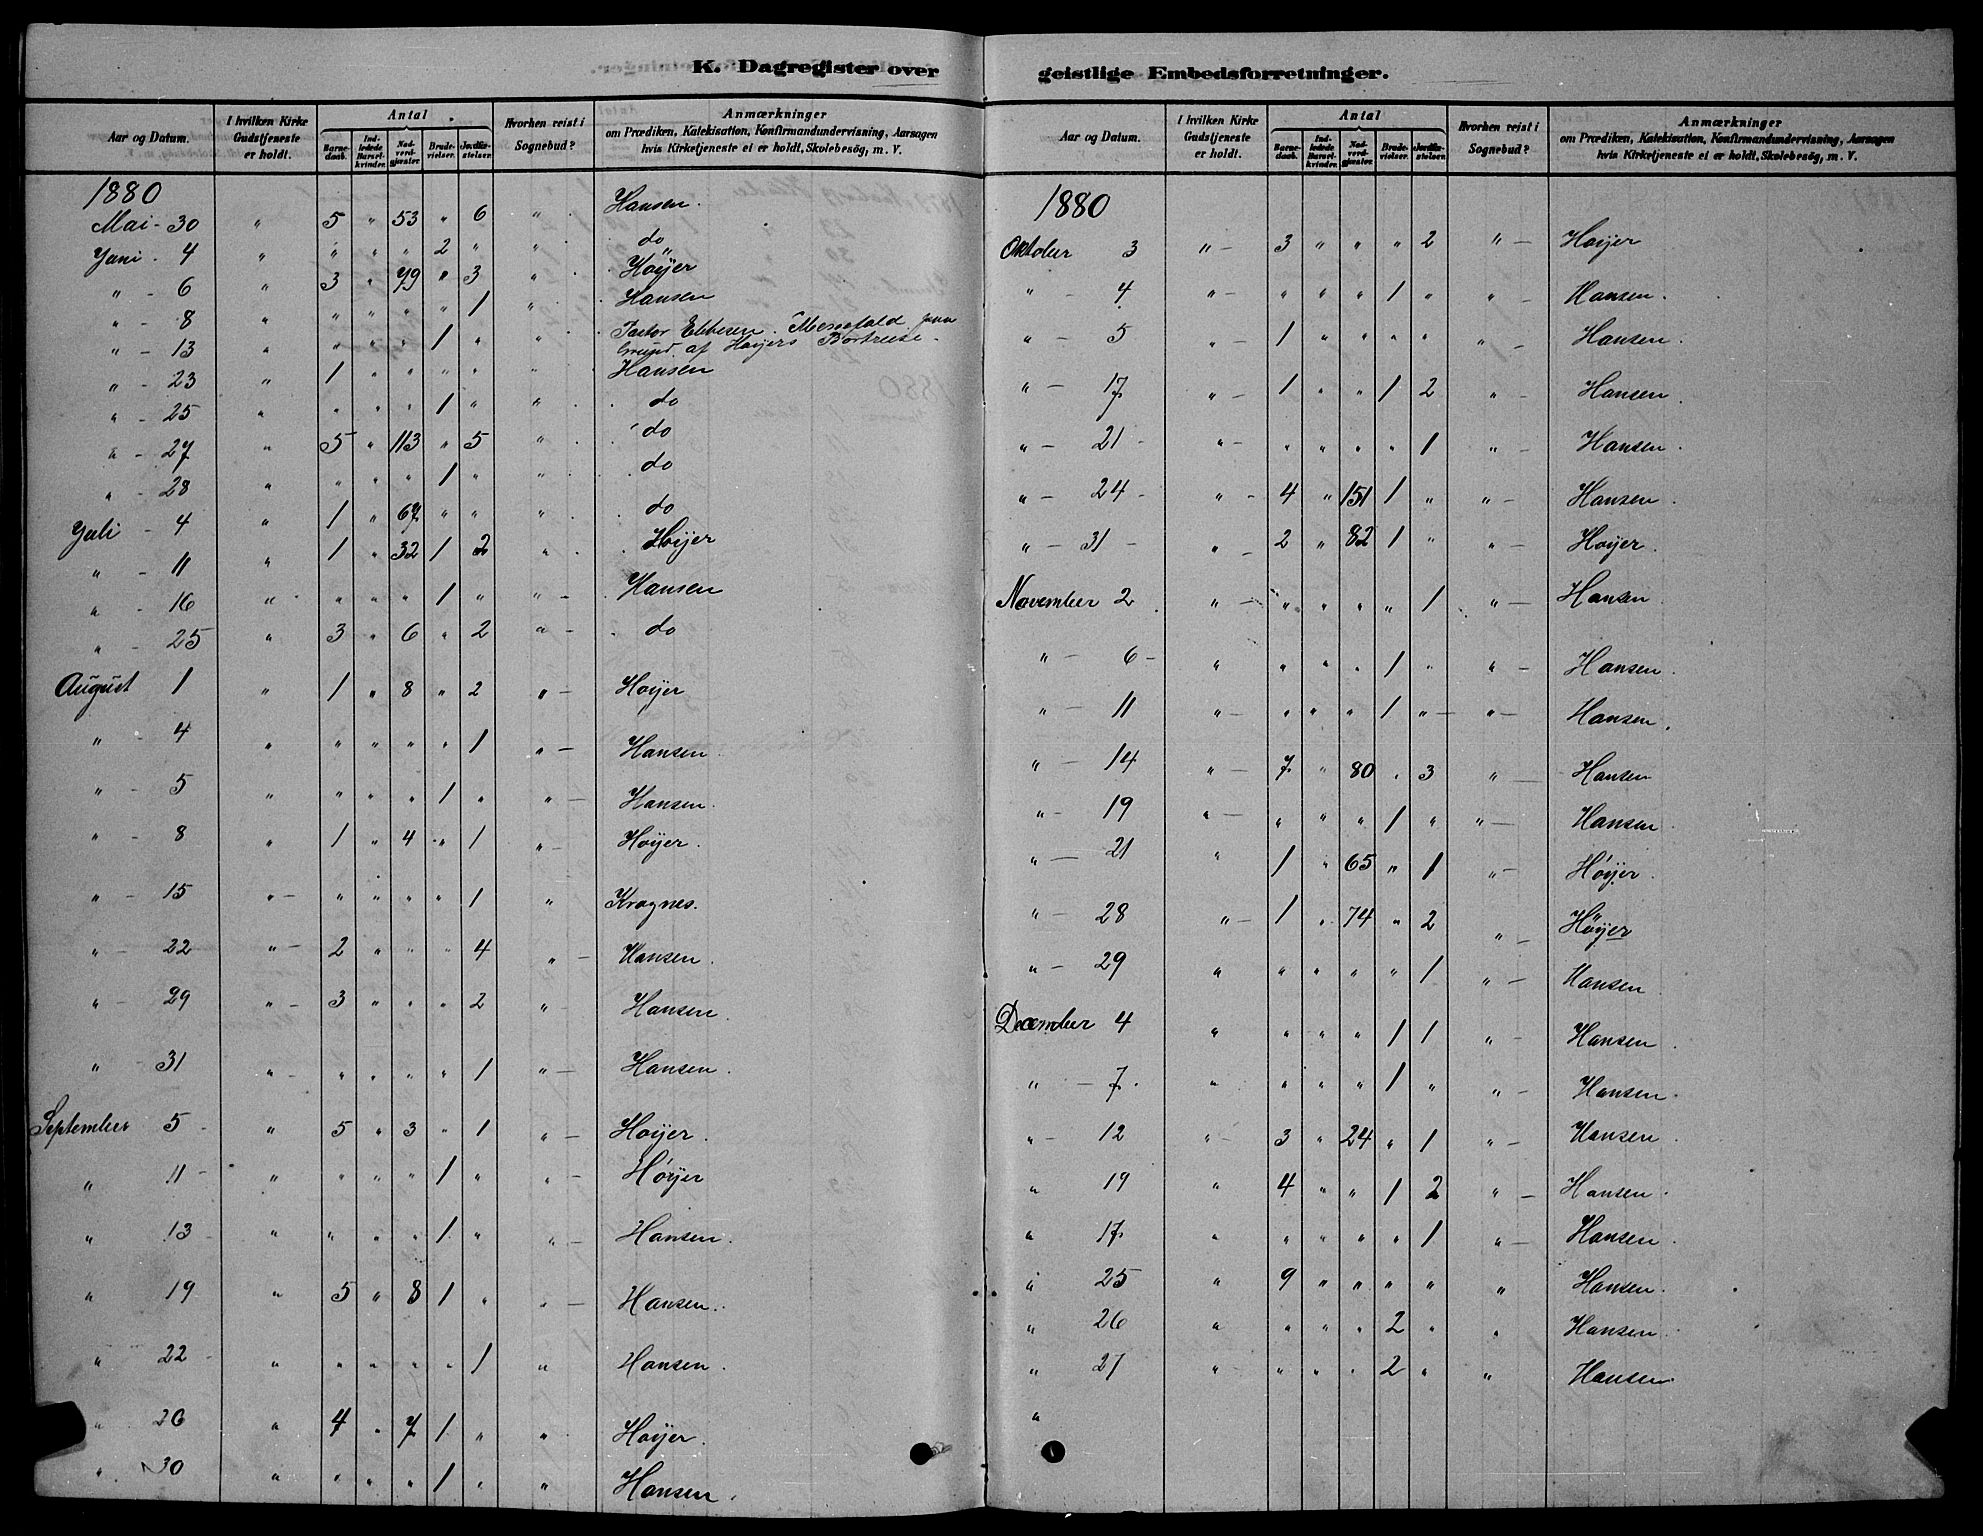 K. Dagregister over geistlige Embedsforretninger.
Aar og Datum. | I hvilken Kirke Gudstjeneste er holdt. | Antal | Barnedaab. | Indledede Barselkvinder. | Nadverdgjester. | Brudevielser. | Jordfæstelser. | Hvorhen reist i Sognebud? | Anmærkninger om Prædiken, Katekisation, Konfirmandundervisning, Aarsagen hvis Kirketjeneste ei er holdt, Skolebesög, m. V.
1880
Mai - 30 " 5 " 53 " 6 " Hansen.
Juni - 4 " " " " 2 " " do
" - 6 " 3 " 79 " 3 " Høÿer
" - 8 " " " " " 1 " Hansen
" - 13 " " " " 1 " " Pastor Ebbesen. Messefald paa
Grund af Høyers Bortreise.
" - 23 " 1 " " " " " Hansen
" - 25 " " " " 1 " " do
" - 27 " 5 " 113 " 5 " do
" - 28 " " " " 1 " " do
Juli - 4 " 1 " 67 " " " do
" - 11 " 1 " 32 1 2 " Høyer
" - 16 " " " " 1 " " - Hansen
" - 25 " 3 " 6 " 2 " - do
August 1 " 1 " 8 " 2 " - Høyer
" - 4 " " " " " 1 " - Hansen.
" - 5 " " " " 1 " " - Hansen.
" - 8 " 1 " 4 " 1 " - Høyer.
" - 15 " - " " " " 1 " Krognes.
" - 22 " - 2 " " " 4 " - Hansen.
" - 29 " - 3 " " " 2 " - Hansen.
" - 31 " - " " " " 1 " - Hansen.
September 5 - " 5 " 3 " 1 " - Høyer.
" 11 - " " " " 1 " " - Høyer
" 13 - " " " " 1 " " - Hansen.
" 19 " 5 " 8 1 " " - Hansen.
" 22 - " " " " " 1 " Hansen.
" 26 " 4 " 7 1 " " Høyer.
" 30 " " " " 1 " " Hansen.
Aar og Datum. | I hvilken Kirke Gudstjeneste er holdt. | Antal | Barnedaab. | Indledede Barselkvinder. | Nadverdgjester. | Brudevielser. | Jordfæstelser. | Hvorhen reist i Sognebud? | Anmærkninger om Prædiken, Katekisation, Konfirmandundervisning, Aarsagen hvis Kirketjeneste ei er holdt, Skolebesög, m. V.
1880
Oktober 3 " - 3 " " " 2 " - Høyer
" - 4 " - " " " 1 " " - Hansen.
" - 5 " - 1 " " " " " - Hansen.
" - 17 " - 1 " " 1 2 " - Hansen.
" - 21 - " - " " " " 1 " - Hansen.
" - 24 - " - 4 " 151 1 " " - Hansen.
" - 31 - " - 2 " 82 1 " " - Høyer.
November 2 " - " " " " 1 " - Hansen
" - 6 - " " " " 1 " " - Hansen.
" - 11 " - " " " 1 " - " - Hansen.
" - 14 " - 7 " 80 " 3 " - Hansen
" - 19 " - " " " 1 " " - Hansen.
" - 21 " 1 " 65 " 1 " - Høyer.
" - 28 " - 1 " 74 " 2 " - Høÿer
" - 29 " " " " " 1 " - Hansen.
December 4 " " " " 1 1 " - Hansen.
" - 7 - " " " " 1 " " - Hansen.
" - 12 " - 3 " 24 " 1 " - Hansen.
" 19 " 4 " " 1 2 " - Hansen.
" 17 " " " " " 1 " - Hansen.
" 25 " 9 " " " " " Hansen.
" 26 " " " " 2 " " Hansen.
" 27 " " " " 2 " " Hansen.
"